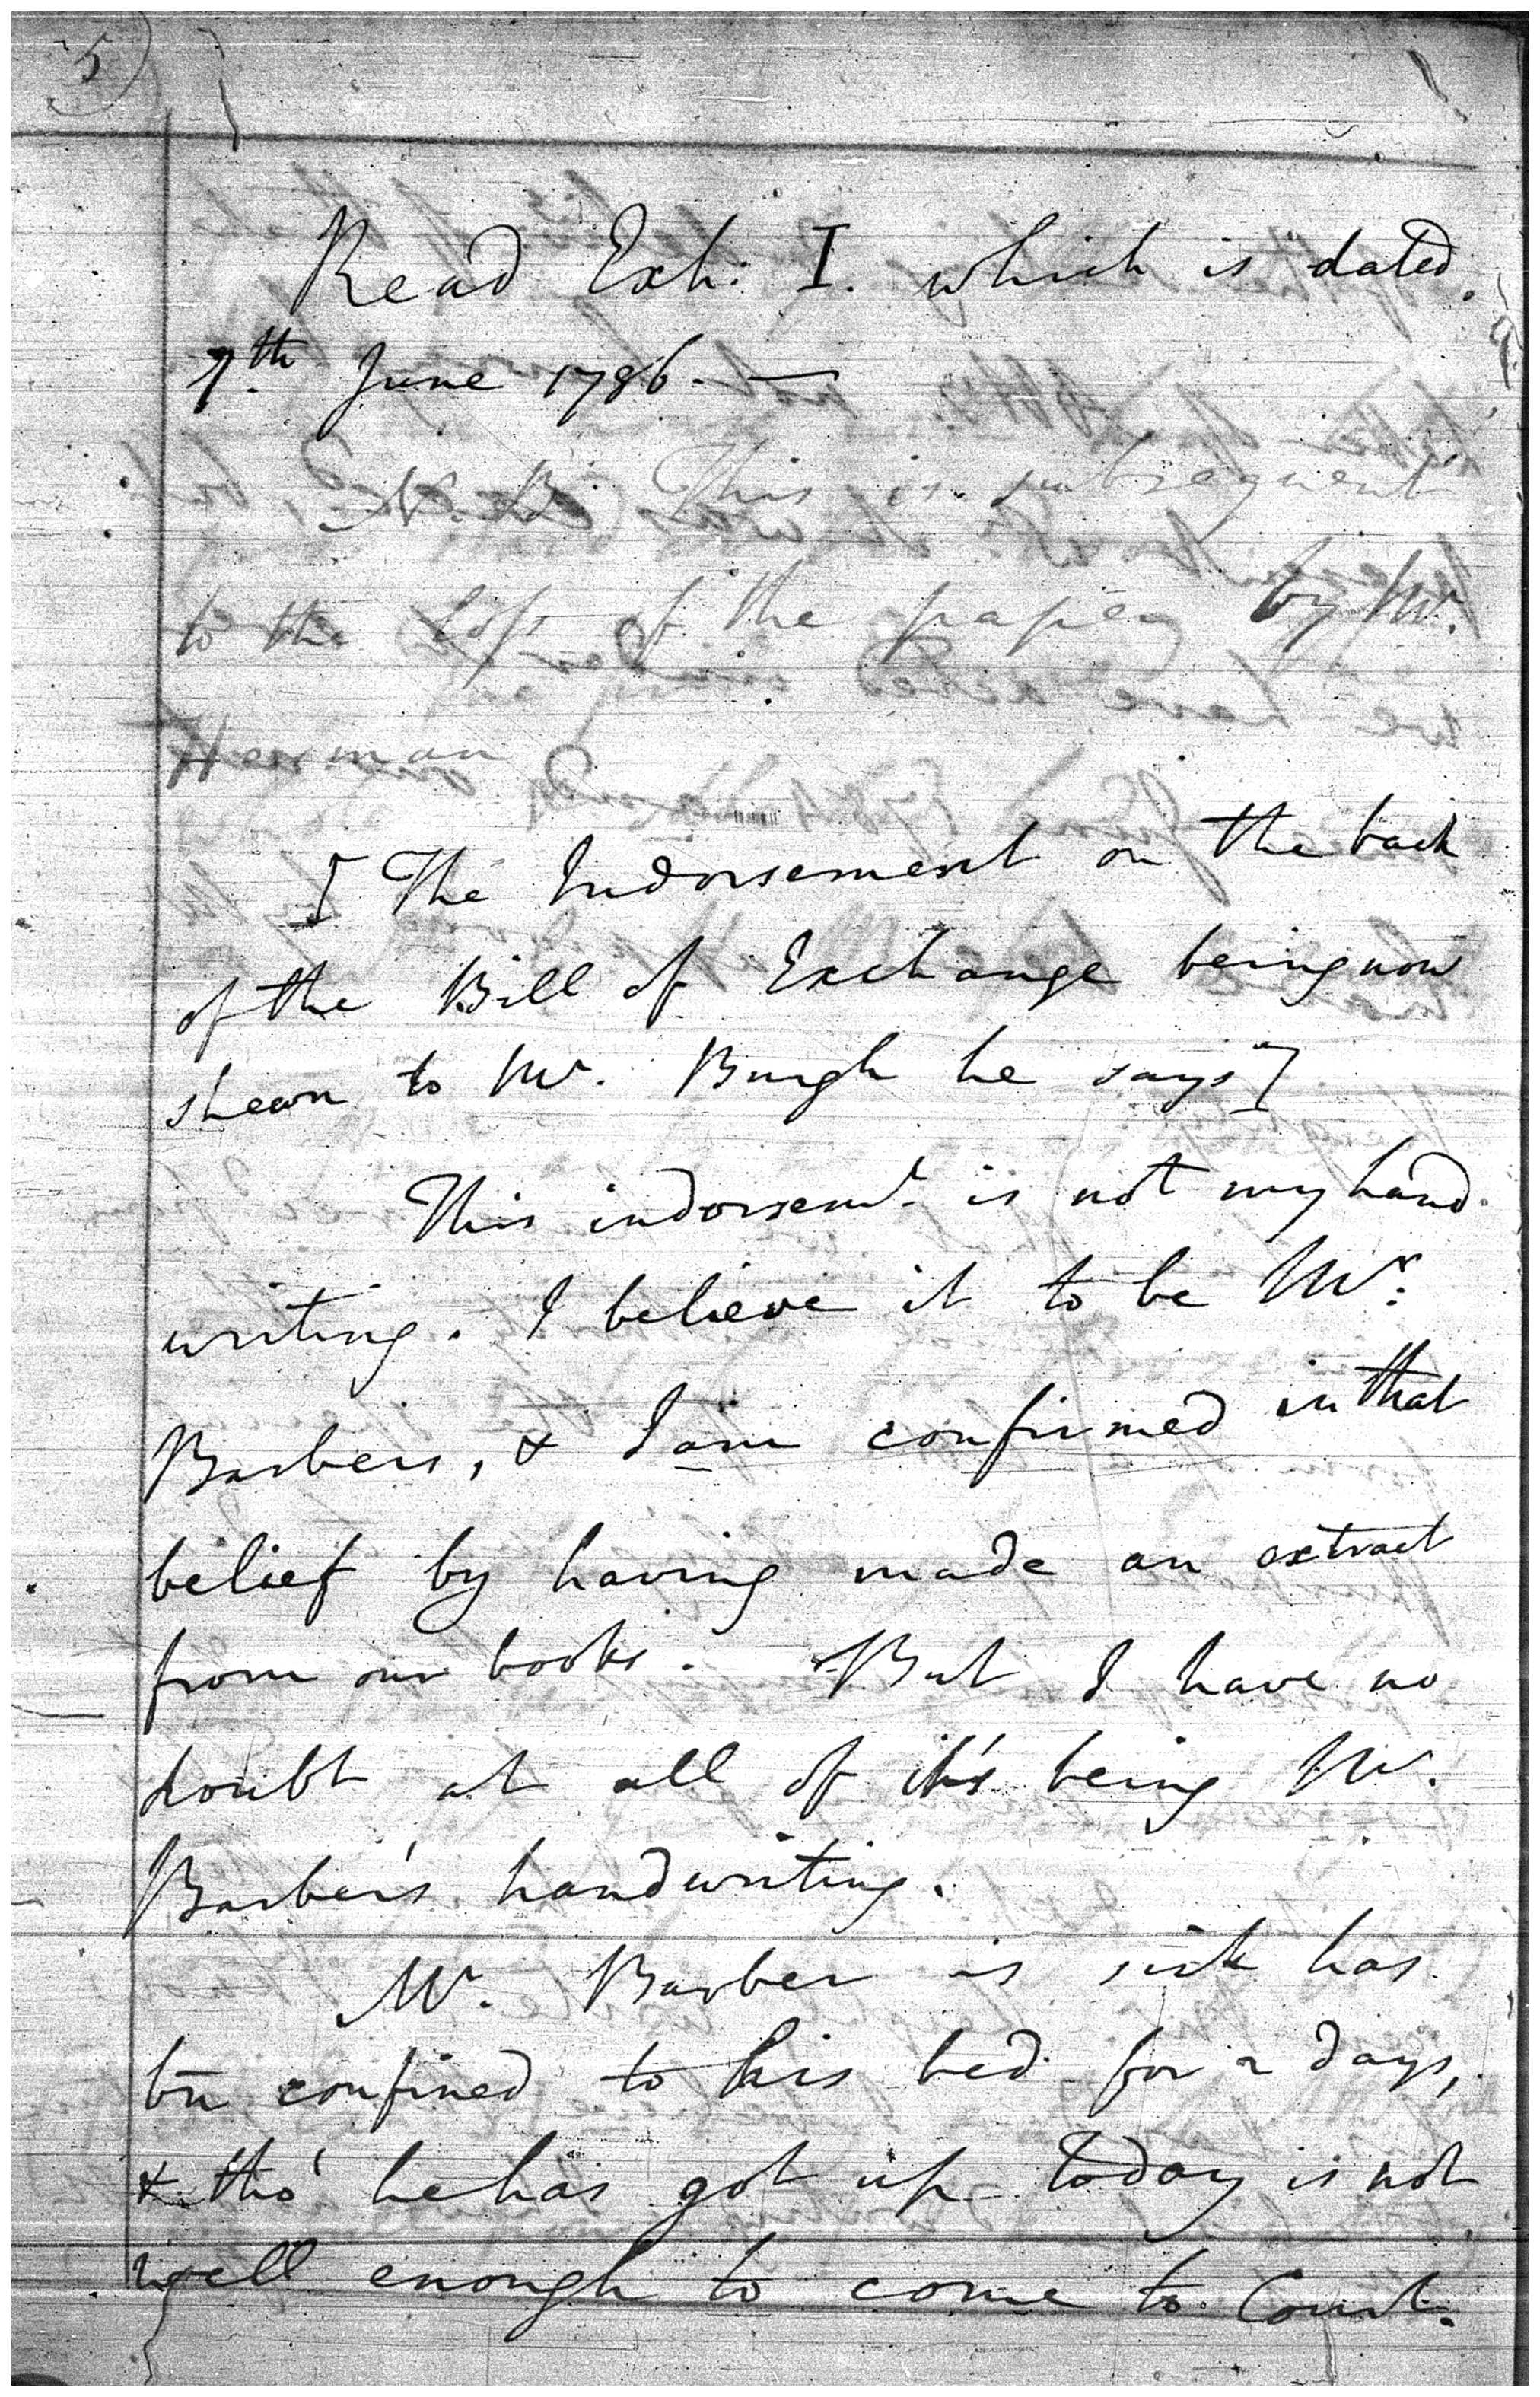 5
Read Exh: I. which is dated
7th June 1786. —
N. B. This is subsequent
to the loss of the papers by Mr.
Herman
[ The Indorsement on the back
of the Bill of Exchange being now
shewn to Mr. Burgh he says ]
This indorsemt. is not my hand
writing. I believe it to be Mr:
Barbers, & I am confirmed in that
belief by having made an extract
from our books. But I have no
doubt at all of it's being Mr.
Barber's handwriting.
Mr. Barber is sick has
bn confined to his bed for 2 days,
& tho' he has got up today is not
well enough to come to Court.